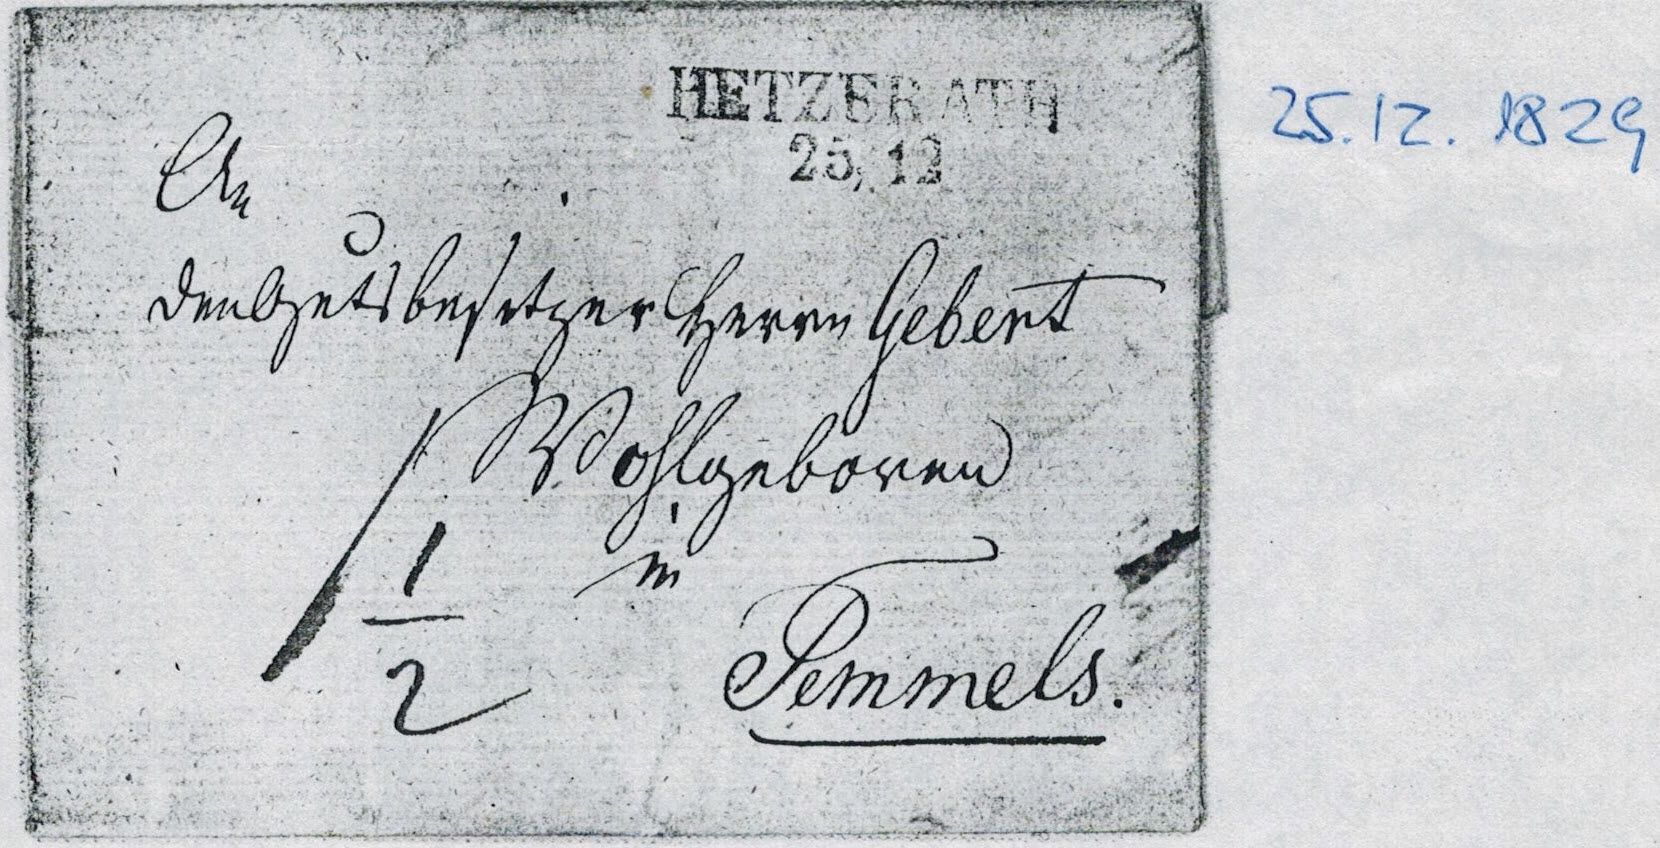 HETZERATH
25.12
25.12.1829
An
den Gutsbesitzer Herrn Gebert
Wohlgeboren
in
1/2
Temmels.